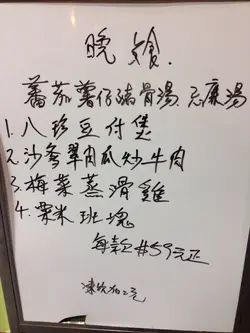 晚 食.
蕃茄薯仔豬骨湯.忌廉湯
1.八珍豆付煲
2.沙爹翠肉瓜炒牛肉
3.梅菜蒸滑雞
4.粟米班塊
每款#59元正
凍飲加2元